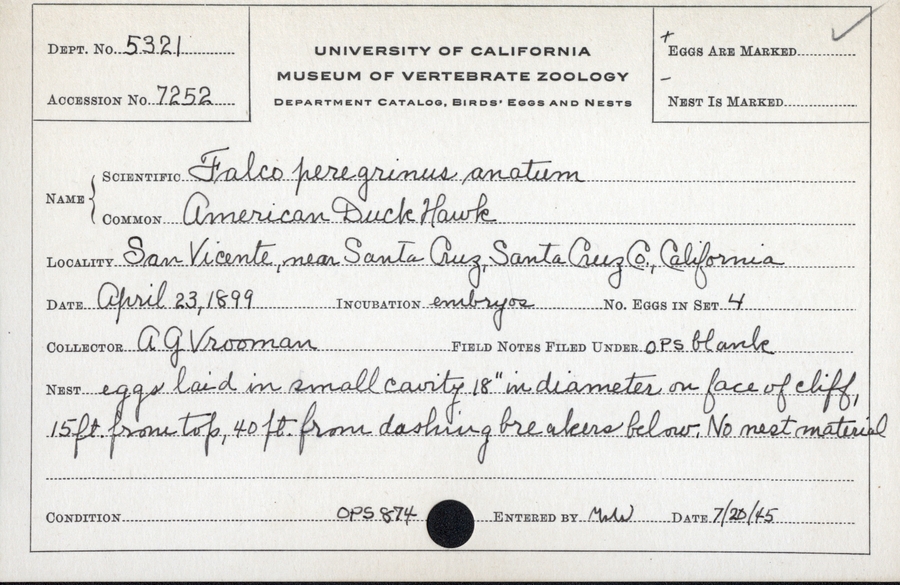 DEPT. No. 5321
ACCESSION No. 7252
UNIVERSITY OF CALIFORNIA
MUSEUM OF VERTEBRATE ZOOLOGY
DEPARTMENT CATALOG, BIRDS' EGGS AND NESTS
+ EGGS ARE MARKED ✓
- NEST IS MARKED
NAME { SCIENTIFIC Falco peregrinus anatum
COMMON American Duck Hawk
LOCALITY San Vicente, near Santa Cruz, Santa Cruz Co., California
DATE April 23, 1899 INCUBATION embryos No. EGGS IN SET 4
COLLECTOR A G Vrooman FIELD NOTES FILED UNDER OPS blank
NEST eggs laid in small cavity 18" in diameter on face of cliff,
15 ft. from top, 40 ft. from dashing breakers below. No nest material
CONDITION OPS 874 ENTERED BY DATE 7/20/45